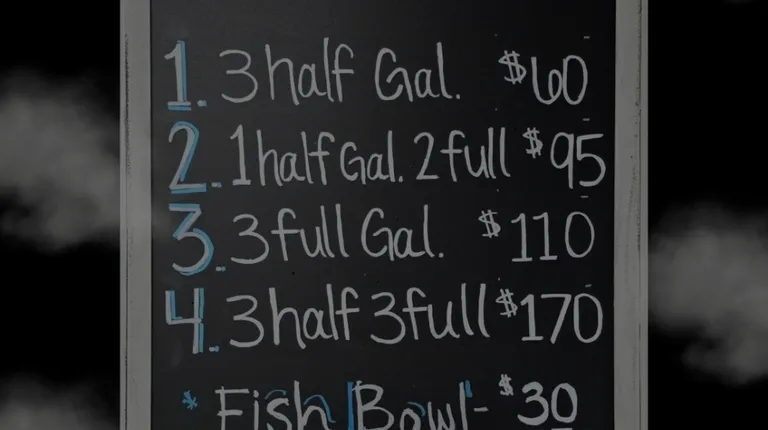 1. 3 half Gal. $60
2. 1 half Gal. 2 full $95
3. 3 full Gal. $110
4. 3 half 3 full $170
* Fish Bowl - $30